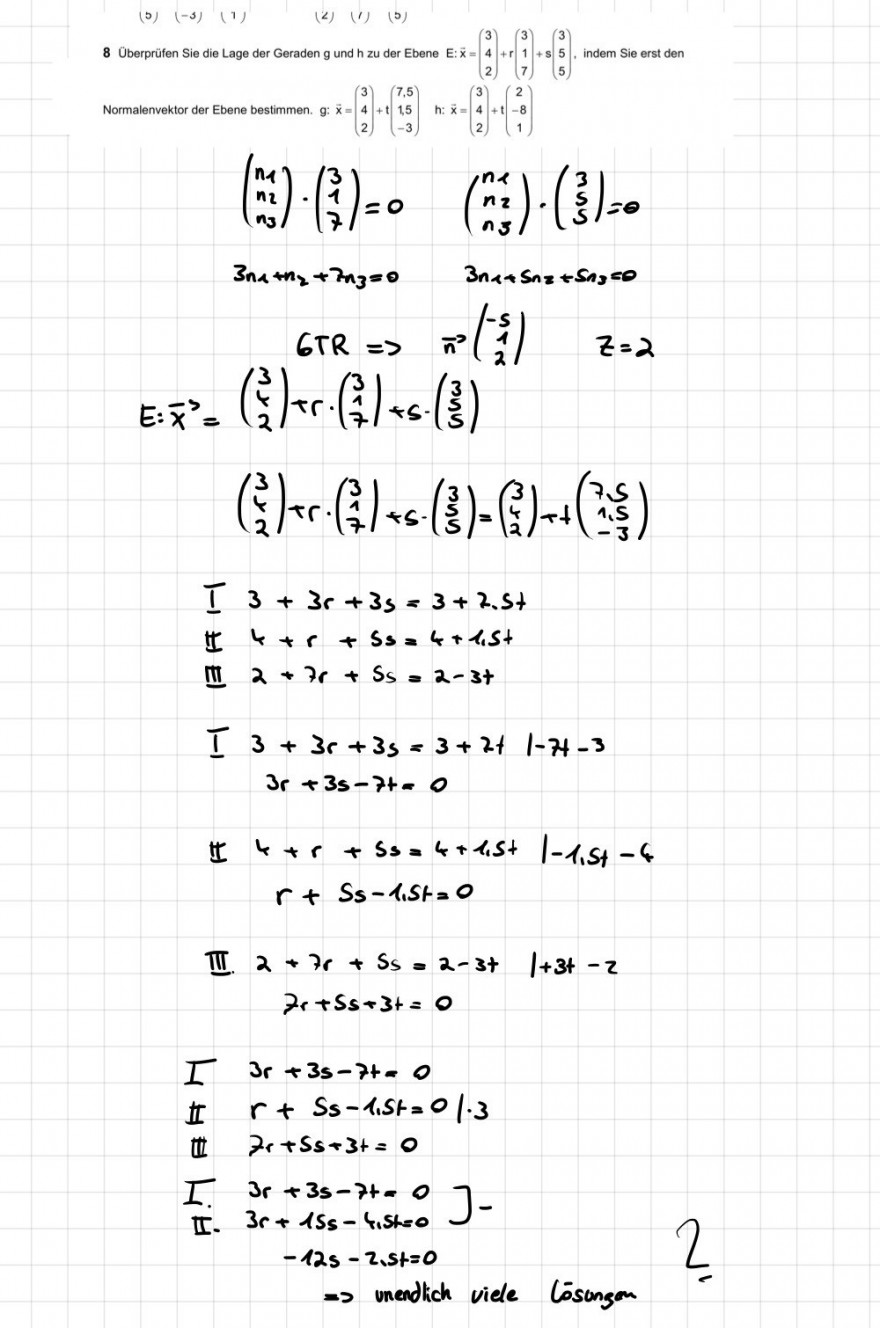 (5) (-3) (1) (2) (7) (5)
8 Überprüfen Sie die Lage der Geraden g und h zu der Ebene E: x⃗ = (3 4 2) + r (3 1 7) + s (3 5 5), indem Sie erst den
Normalenvektor der Ebene bestimmen. g: x⃗ = (3 4 2) + t (7,5 1,5 -3) h: x⃗ = (3 4 2) + t (2 -8 1)
(n1 n2 n3) · (3 1 7) = 0 (n1 n2 n3) · (3 5 5) = 0
3n1 + n2 + 7n3 = 0 3n1 + 5n2 + 5n3 = 0
GTR => n⃗ (-5 1 2) z = 2
E: x⃗ = (3 4 2) + r · (3 1 7) + s · (3 5 5)
(3 4 2) + r · (3 1 7) + s · (3 5 5) = (3 4 2) + t (7,5 1,5 -3)
I 3 + 3r + 3s = 3 + 2,5t
II 4 + r + 5s = 4 + 1,5t
III 2 + 7r + 5s = 2 - 3t
I 3 + 3r + 3s = 3 + 2t |-7t - 3
3r + 3s - 7t = 0
II 4 + r + 5s = 4 + 1,5t |-1,5t - 4
r + 5s - 1,5t = 0
III. 2 + 7r + 5s = 2 - 3t |+3t - 2
7r + 5s + 3t = 0
I 3r + 3s - 7t = 0
II r + 5s - 1,5t = 0 |·3
III 7r + 5s + 3t = 0
I. 3r + 3s - 7t = 0 ] -
II. 3r + 15s - 4,5t = 0
-12s - 2,5t = 0
=> unendlich viele Lösungen ?